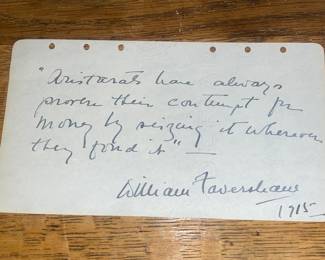 "Aristocrats have always
proven their contempt for
money by seizing it wherever
they found it" —
William Faversham
1915